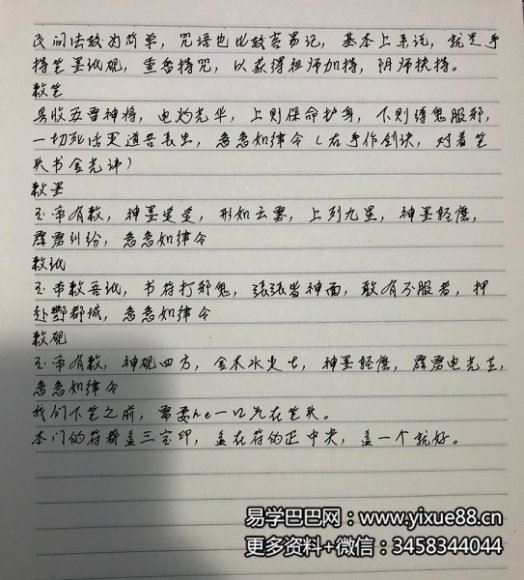 民间法较为简单，咒语也比较容易记，基本上来说，就是手
持笔墨纸砚，重香持咒，以获得祖师加持，阴师扶持。
敕笔
居收五雷神将，电灼光华，上则保命护身，下则缚鬼服邪，
一切死活灭道吾长生，急急如律令（右手作剑诀，对着笔
头书金光讳）
敕墨
玉帝有敕，神墨灵灵，形如云雾，上列九星，神墨轻磨，
霹雳纠纷，急急如律令
敕纸
玉帝敕吾纸，书符打邪鬼，张张皆神面，敢有不服者，押
赴酆都城，急急如律令
敕砚
玉帝有敕，神砚四方，金木水火土，神墨轻磨，霹雳电光芒，
急急如律令
我们下笔之前，需要he一口气在笔头。
本门的符都盖三宝印，盖在符的正中央，盖一个就好。
易学巴巴网：www.yixue88.cn
更多资料+微信：3458344044